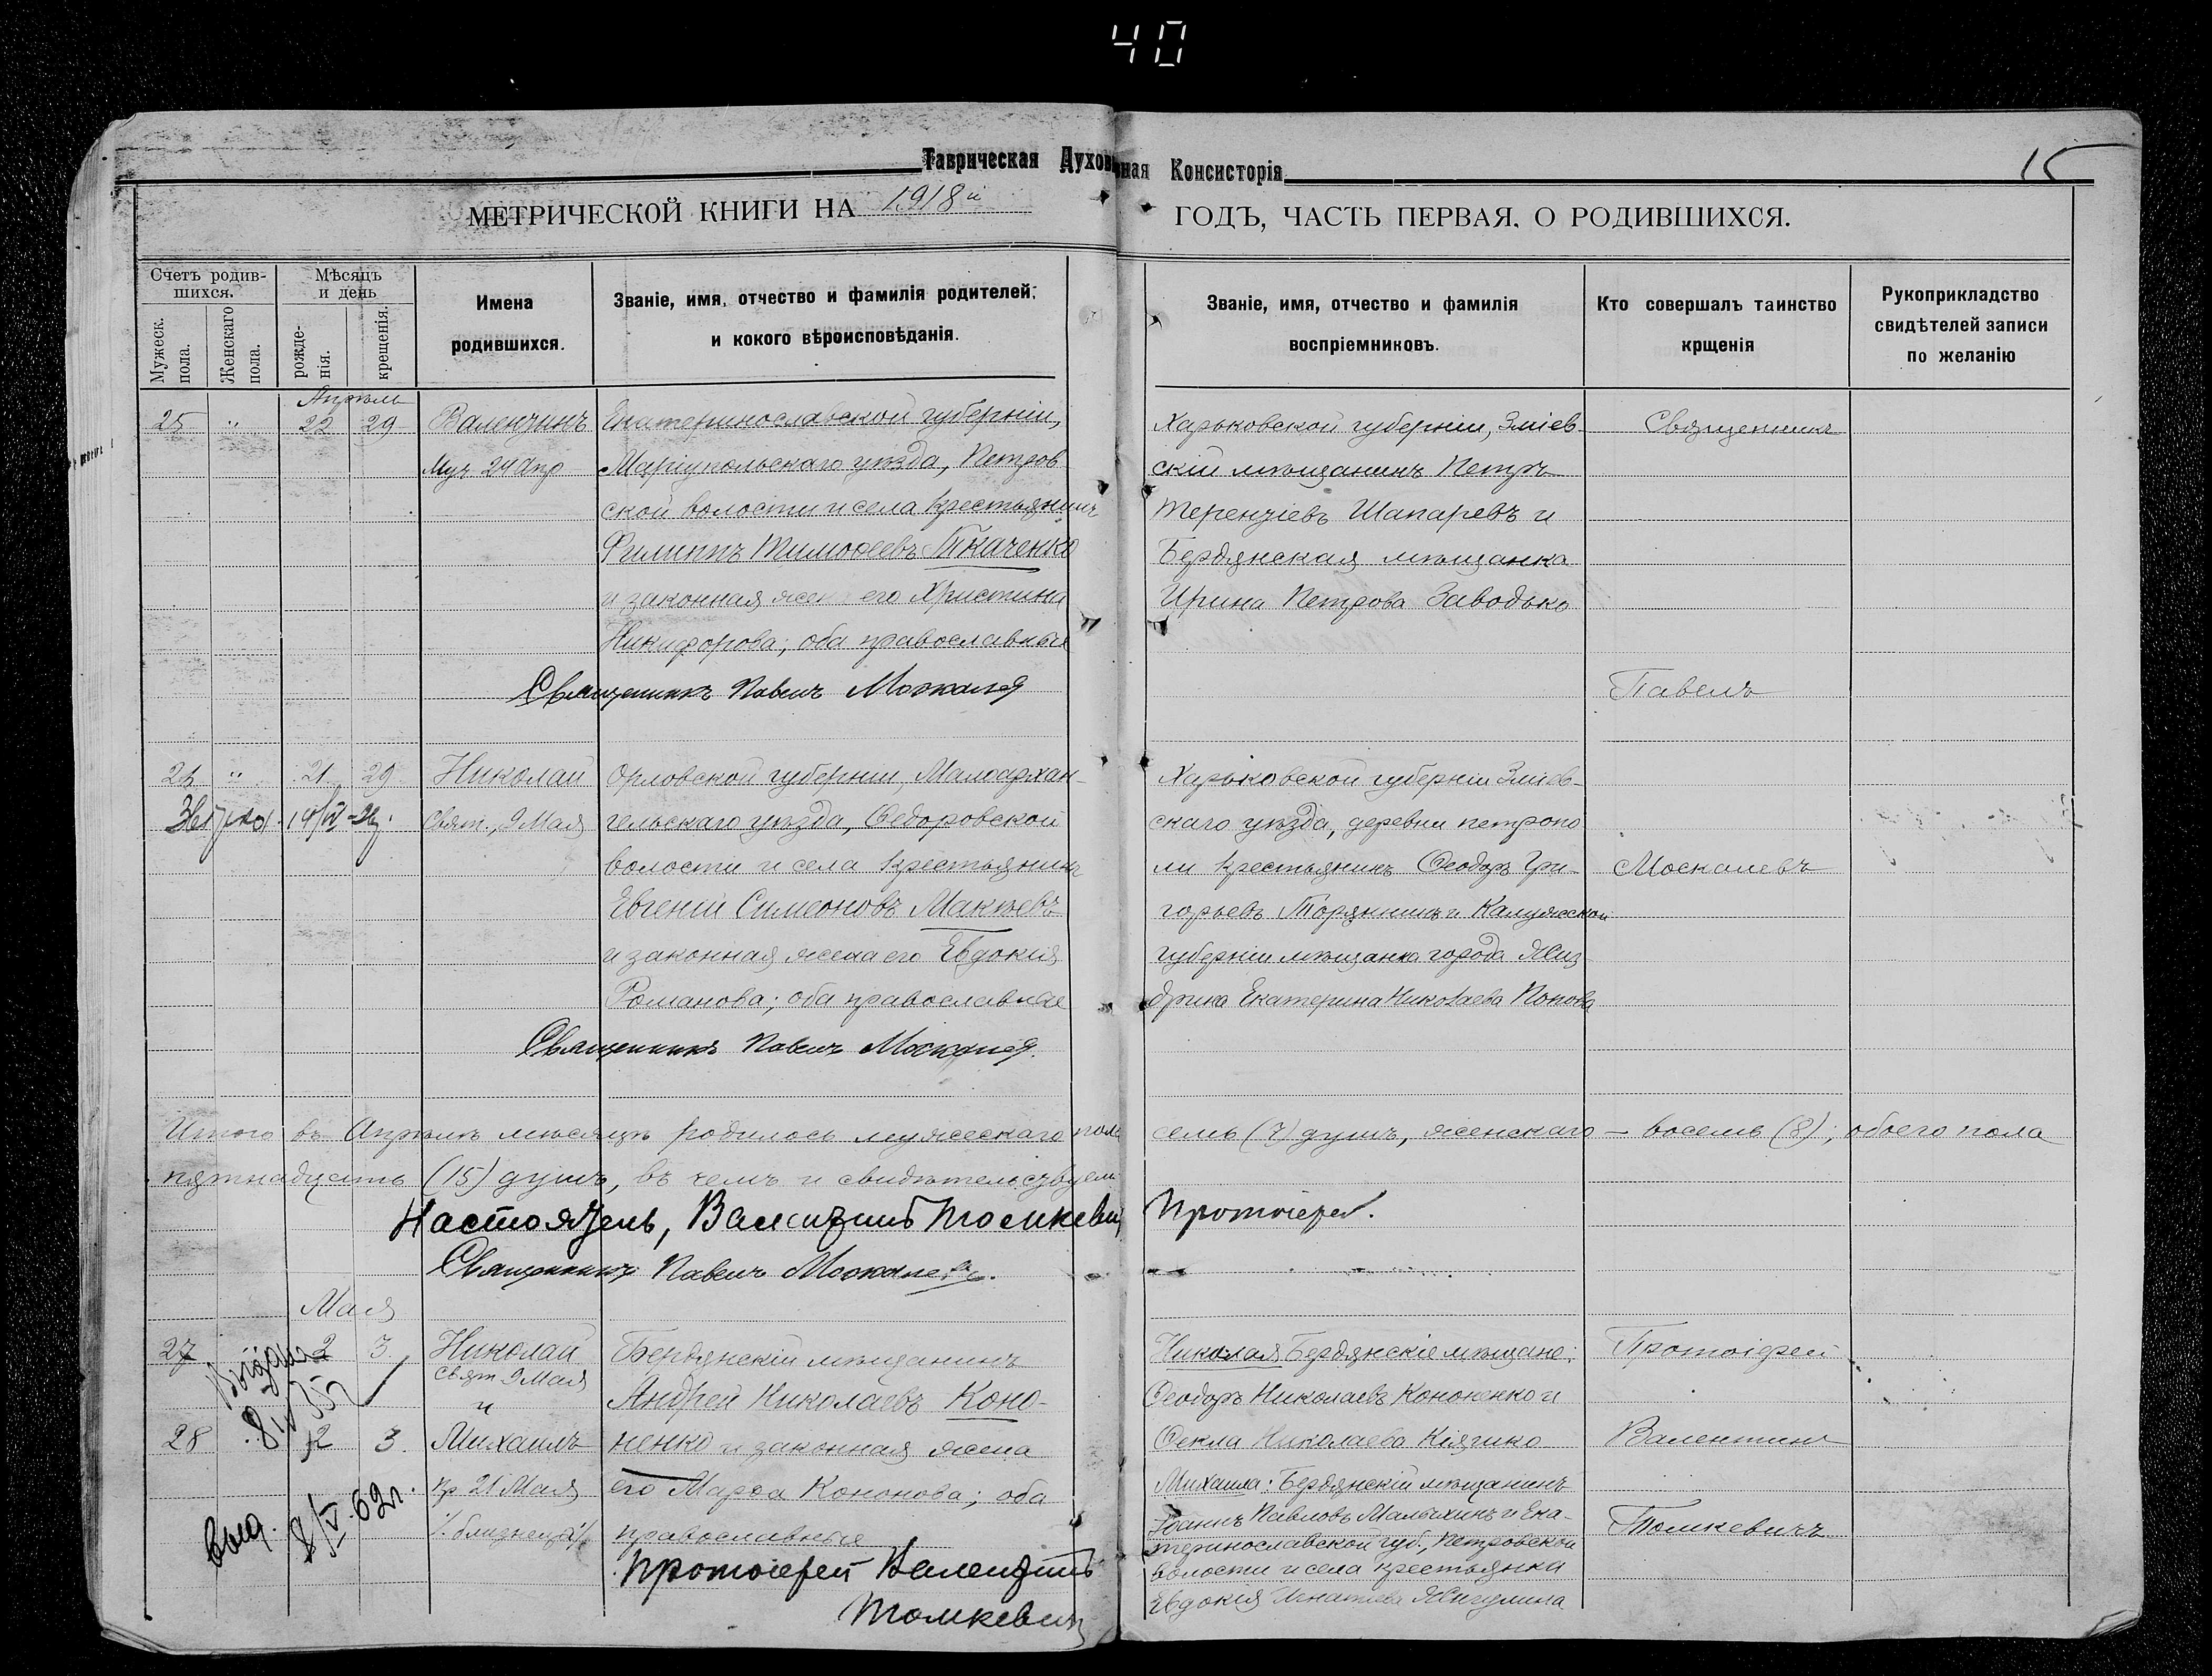 40
Таврическая Духовная Консисторія
15
МЕТРИЧЕСКОЙ КНИГИ НА 1918й ГОДЪ, ЧАСТЬ ПЕРВАЯ, О РОДИВШИХСЯ.
Счетъ родив-
шихся.
Мужеск.
пола.
Женскаго
пола.
Мѣсяцъ
и день
рожде-
нія.
крещенія.
Имена
родившихся.
Званіе, имя, отчество и фамилія родителей,
и кокого вѣроисповѣданія.
Званіе, имя, отчество и фамилія
воспріемниковъ.
Кто совершалъ таинство
крщенія
Рукоприкладство
свидѣтелей записи
по желанію
Апрѣль
25 " 22 29 Валентинъ
Муч 24 Апр
Екатеринославской губерніи,
Маріупольскаго уѣзда, Петров
ской волости и села крестьянинъ
Филиппъ Тимоѳеевъ Ткаченко
и законная жена его Христина
Никифорова; оба православные
Священникъ Павелъ Москалев
Харьковской губерніи, Зміев-
скій мѣщанинъ Петръ
Терентіевъ Шапаревъ и
Бердянская мѣщанка
Ирина Петрова Заводько
Священникъ
Павелъ
Москалевъ
" 21 29 Николай
Свят., 9 Мая
Орловской губерніи, Малоархан-
гельскаго уѣзда, Ѳедоровской
волости и села крестьянинъ
Евгеній Симеоновъ Макѣевъ
и законная жена его Евдокія
Романова; оба православные
Священникъ Павелъ Москалев.
Харьковской губерніи Зміев-
скаго уѣзда, деревни петропо
ли крестьянинъ Ѳеодоръ Гри-
горьевъ Торяникъ и Калужской
губерніи мѣщанка города Жиз
дрика Екатерина Николаева Попова
Итого въ Апрѣлѣ мѣсяцѣ родилось мужескаго пола семь (7) душъ, женскаго – восемь (8); обоего пола
пятнадцать (15) душъ, въ чемъ и свидѣтельствуемъ
Настоятель, Валентинъ Томкевич Протоіерей.
Священникъ Павелъ Москалевъ.
Мая
27 2 3 Николай
Свят 9 Мая
и
28 2 3. Михаилъ
Пр 21 Мая
близнецы
Выд. 8/V-62г.
Бердянскій мѣщанинъ
Андрей Николаевъ Коно-
ненко и законная жена
его Марѳа Кононова; оба
православные
Протоіерей Валентинъ
Томкевич
Николая Бердянскіе мѣщане:
Ѳеодоръ Николаевъ Кононенко и
Ѳекла Николаева Кіяшко
Михаила: Бердянскій мѣщанинъ
Іоаннъ Павловъ Малыхинъ и Ека-
теринославской губ., Петровской
волости и села крестьянка
Евдокія Игнатова Жигулина
Протоіерей
Валентинъ
Томкевичъ